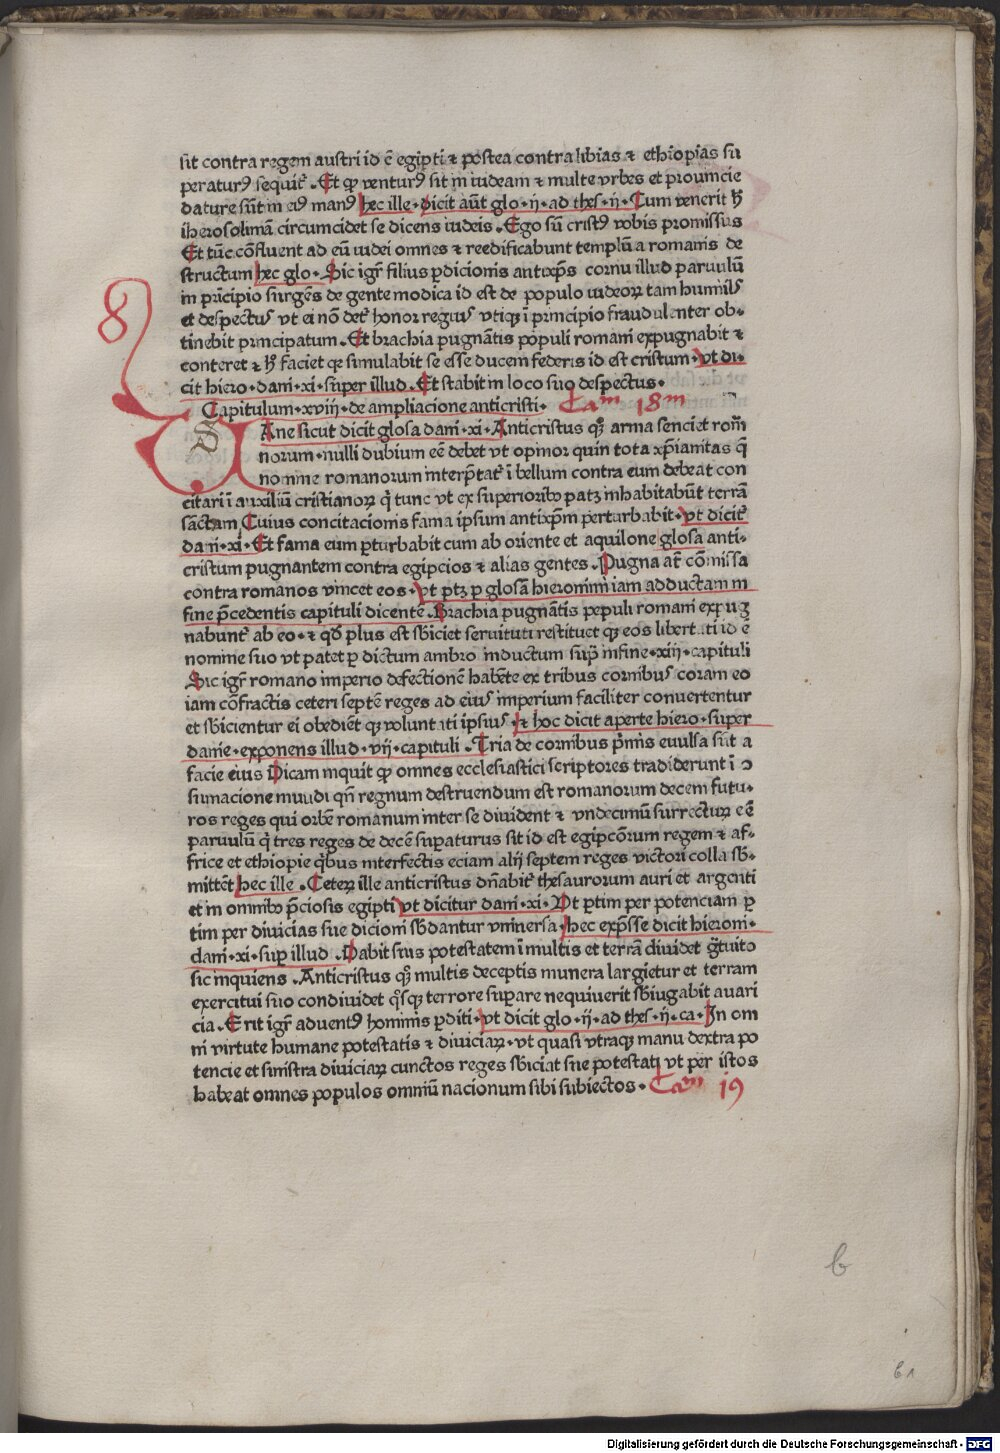 sit contra regem austri id ē egipti ⁊ postea contra libias ⁊ ethiopias su
peraturꝰ sequit᷑. Et ꝙ venturꝰ sit in iudeam ⁊ multe vrbes et prouincie
dature sūt in eiꝰ manꝰ hec ille. dicit aūt glo. ij. ad thes. ij. Cum venerit h̄
iherosolimā circumcidet se dicens iudeis. Ego sū cristꝰ vobis promissus
Et tūc cōfluent ad eū iudei omnes ⁊ reedificabunt templū a romanis de
structum hec glo. Sic igr̄ filius ꝑdicionis antixp̄s cornu illud paruulū
in prīcipio surgēs de gente modica id est de populo iudeoꝝ tam humilꝭ
et despectuꝭ vt ei nō det᷑ honor regiuꝭ vtiqꝫ ī principio fraudulenter ob-
tinebit principatum. Et brachia pugnātis populi romani expugnabit ⁊
conteret ⁊ h̄ faciet qꝛ simulabit se esse ducem federis id est cristum. vt di-
cit hiero. dani. xi. super illud. Et stabit in loco suo despectus.
Capitulum. xviij. de ampliacione anticristi. Cam 18m
SAne sicut dicit glosa dani. xi. Anticristus qꝫ arma senciet rom̄
norum. nulli dubium eē debet vt opinor quin tota xp̄ianitas q̄
nomine romanorum interp̄tat᷑ ī bellum contra eum debeat con
citari ī auxiliū cristianoꝝ q̄ tunc vt ex superioribꝰ patꝫ inhabitabūt terrā
sāctam Cuius concitacionis fama ipsum antixp̄m perturbabit. vt dicit᷑
dani. xi. Et fama eum ꝑturbabit cum ab oriente et aquilone glosa anti-
cristum pugnantem contra egipcios ⁊ alias gentes. Pugna at̄ cōmissa
contra romanos vincet eos. vt ptꝫ ꝑ glosā hieronimi iam adductam in
fine p̄cedentis capituli dicente. Brachia pugnātis populi romani expug
nabunt᷑ ab eo. ⁊ qd̄ plus est sb̄iciet seruituti restituet qꝫ eos libertati id ē
nomine suo vt patet ꝑ dictum ambro inductum sup̄ in fine. xiij. capituli
Sic igr̄ romano imperio defectionē habēte ex tribus cornibuꝭ coram eo
iam cōfractis ceteri septē reges ad eiuꝭ imperium faciliter conuertentur
et sb̄icientur ei obediēt qꝫ voluntati ipsiuꝭ. ⁊ hoc dicit aperte hiero. super
danie. exponens illud. vij. capituli. Tria de cornibus p̄mis euulsa sūt a
facie eius Dicam inquit ꝙ omnes ecclesiastici scriptores tradiderunt ī ꝯ
sumacione mundi qn̄ regnum destruendum est romanorum decem futu-
ros reges qui orbē romanum inter se diuident ⁊ vndecimū surrecturꝫ eē
paruulū q̄ tres reges de decē suꝑaturus sit id est egipcōrum regem ⁊ af-
frice et ethiopie q̄bus interfectis eciam alij septem reges victori colla sb̄-
mittēt hec ille. Ceterꝫ ille anticristus dn̄abit᷑ thesaurorum auri et argenti
et in omnibꝰ p̄ciosis egipti vt dicitur dani. xi. Vt ꝑtim per potenciam ꝑ
tim per diuicias sue dicioni sb̄dantur vniuersa. hec exp̄sse dicit hieroni.
dani. xi. suꝑ illud. Dabit suis potestatem ī multis et terrā diuidet g̃tuito
sic inquiens. Anticristus qꝫ multis deceptis munera largietur et terram
exercitui suo condiuidet q̄sqꝫ terrore suꝑare nequiuerit sb̄iugabit auari
cia. Erit igr̄ aduentꝰ hominis ꝑditi. vt dicit glo. ij. ad thes. ij. ca. In om
ni virtute humane potestatis ⁊ diuiciaꝝ. vt quasi vtraqꝫ manu dextra po
tencie et sinistra diuiciaꝝ cunctos reges sb̄iciat sue potestati vt per istos
habeat omnes populos omniū nacionum sibi subiectos. Cam 19
b
61
Digitalisierung gefördert durch die Deutsche Forschungsgemeinschaft - DFG